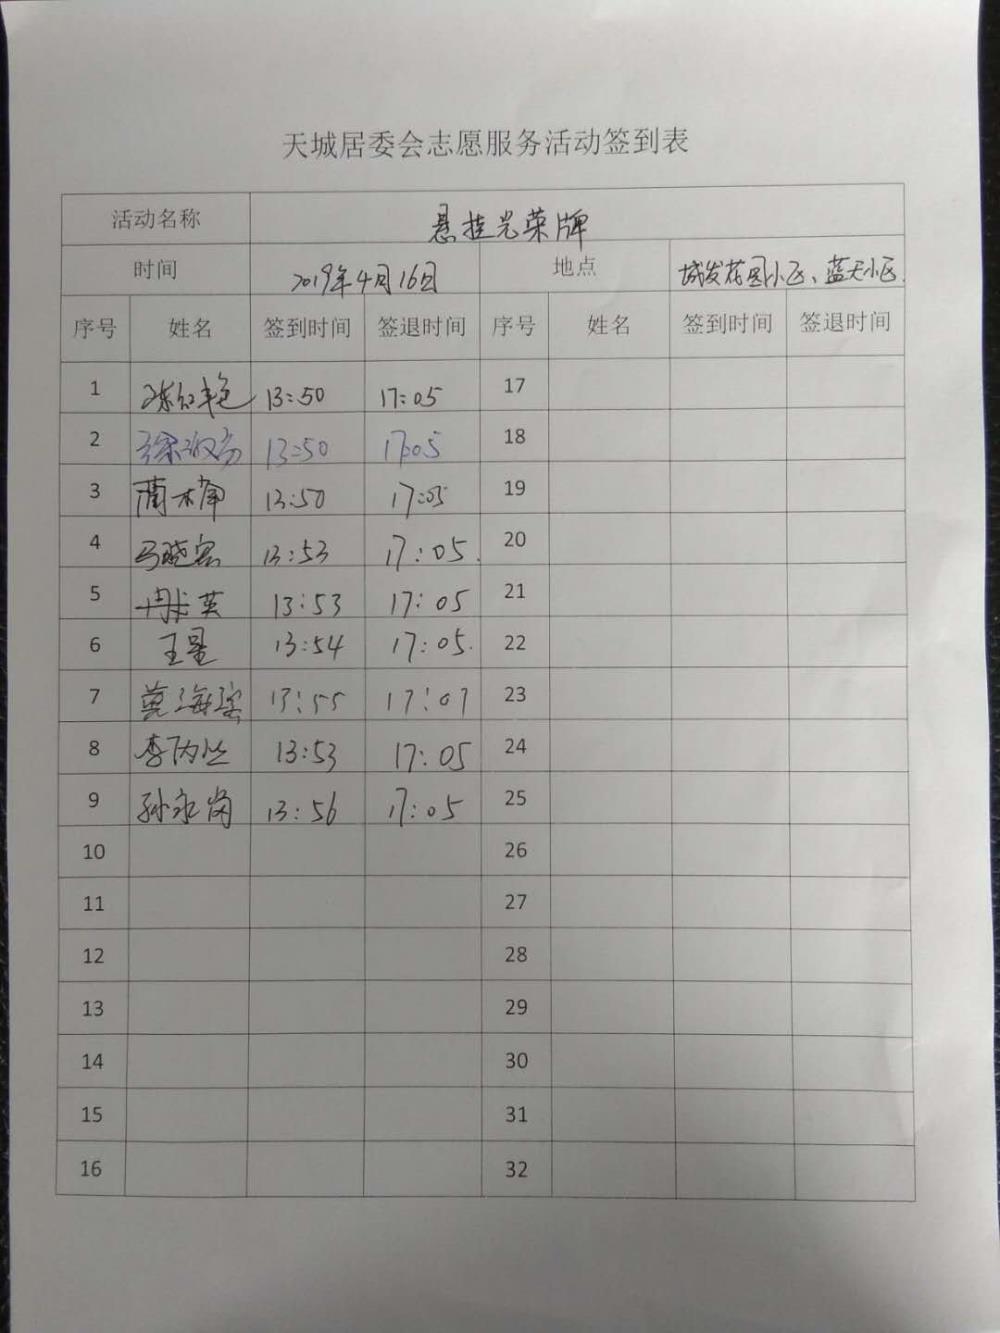 天城居委会志愿服务活动签到表
活动名称 悬挂光荣牌
时间 2019年4月16日 地点 城发花园小区、蓝天小区
序号 姓名 签到时间 签退时间 序号 姓名 签到时间 签退时间
1 陈红艳 13:50 17:05 17
2 13:50 17:05 18
3 13:50 17:05 19
4 马晓宏 13:53 17:05. 20
5 英 13:53 17:05 21
6 王星 13:54 17:05. 22
7 海 13:55 17:07 23
8 李 13:53 17:05 24
9 孙永岗 13:56 17:05 25
10 26
11 27
12 28
13 29
14 30
15 31
16 32